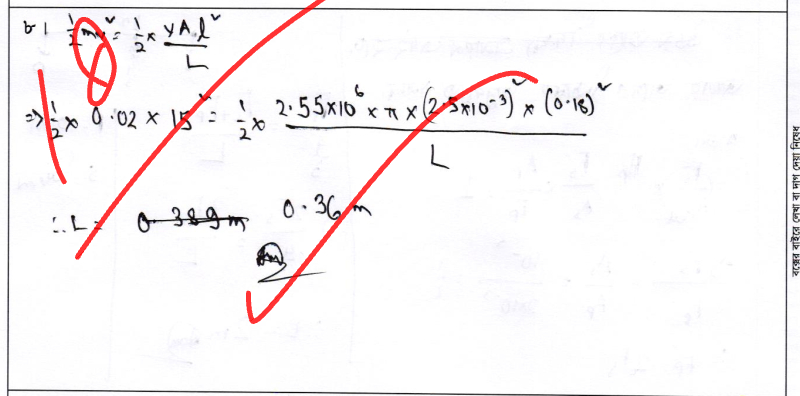 ৮। ½mv² = ½ × YAl²/L
⇒ ½ × 0.02 × 15² = ½ × 2.55×10⁶ × π × (2.5×10⁻³)² × (0.18)²/L
∴ L = 0.389 m 0.36 m
বক্সের বাইরে লেখা বা দাগ দেয়া নিষেধ